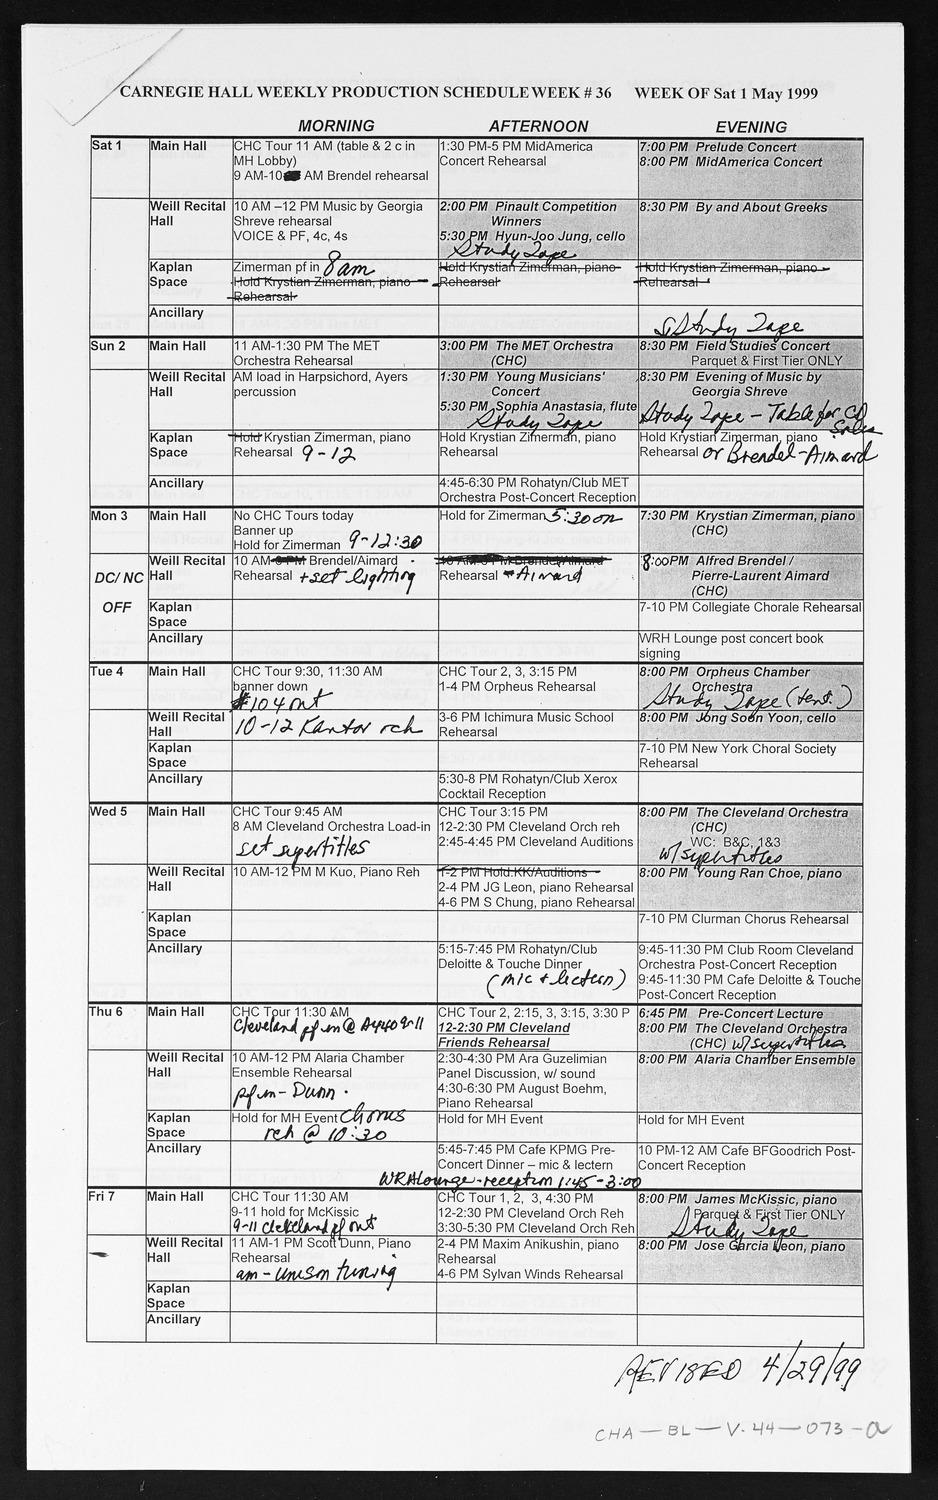 CARNEGIE HALL WEEKLY PRODUCTION SCHEDULE WEEK # 36 WEEK OF Sat 1 May 1999
MORNING AFTERNOON EVENING
Sat 1
Main Hall
CHC Tour 11 AM (table & 2 c in
MH Lobby)
9 AM-10 AM Brendel rehearsal
1:30 PM-5 PM MidAmerica
Concert Rehearsal
7:00 PM Prelude Concert
8:00 PM MidAmerica Concert
Weill Recital
Hall
10 AM –12 PM Music by Georgia
Shreve rehearsal
VOICE & PF, 4c, 4s
2:00 PM Pinault Competition
Winners
5:30 PM Hyun-Joo Jung, cello
Study Tape
8:30 PM By and About Greeks
Kaplan
Space
Zimerman pf in 8am
Hold Krystian Zimerman, piano
Rehearsal
Hold Krystian Zimerman, piano
Rehearsal
Hold Krystian Zimerman, piano
Rehearsal
Ancillary
Study Tape
Sun 2
Main Hall
11 AM-1:30 PM The MET
Orchestra Rehearsal
3:00 PM The MET Orchestra
(CHC)
8:30 PM Field Studies Concert
Parquet & First Tier ONLY
Weill Recital
Hall
AM load in Harpsichord, Ayers
percussion
1:30 PM Young Musicians'
Concert
5:30 PM Sophia Anastasia, flute
Study Tape
8:30 PM Evening of Music by
Georgia Shreve
Study Tape - Table for CD
Sales
Kaplan
Space
Hold Krystian Zimerman, piano
Rehearsal 9-12
Hold Krystian Zimerman, piano
Rehearsal
Hold Krystian Zimerman, piano
Rehearsal or Brendel-Aimard
Ancillary
4:45-6:30 PM Rohatyn/Club MET
Orchestra Post-Concert Reception
Mon 3
DC/ NC
OFF
Main Hall
No CHC Tours today
Banner up
Hold for Zimerman 9-12:30
Hold for Zimerman 5:30 on
7:30 PM Krystian Zimerman, piano
(CHC)
Weill Recital
Hall
10 AM-5 PM Brendel/Aimard
Rehearsal + set lighting
10 AM-5 PM Brendel/Aimard
Rehearsal - Aimard
8:00PM Alfred Brendel /
Pierre-Laurent Aimard
(CHC)
Kaplan
Space
7-10 PM Collegiate Chorale Rehearsal
Ancillary
WRH Lounge post concert book
signing
Tue 4
Main Hall
CHC Tour 9:30, 11:30 AM
banner down
#104 out
CHC Tour 2, 3, 3:15 PM
1-4 PM Orpheus Rehearsal
8:00 PM Orpheus Chamber
Orchestra
Study Tape (tent.)
Weill Recital
Hall
10-12 Kantor reh
3-6 PM Ichimura Music School
Rehearsal
8:00 PM Jong Soon Yoon, cello
Kaplan
Space
7-10 PM New York Choral Society
Rehearsal
Ancillary
5:30-8 PM Rohatyn/Club Xerox
Cocktail Reception
Wed 5
Main Hall
CHC Tour 9:45 AM
8 AM Cleveland Orchestra Load-in
set supertitles
CHC Tour 3:15 PM
12-2:30 PM Cleveland Orch reh
2:45-4:45 PM Cleveland Auditions
8:00 PM The Cleveland Orchestra
(CHC)
WC: B&C, 1&3
w/supertitles
Weill Recital
Hall
10 AM-12 PM M Kuo, Piano Reh
1-2 PM Hold KK/Auditions
2-4 PM JG Leon, piano Rehearsal
4-6 PM S Chung, piano Rehearsal
8:00 PM Young Ran Choe, piano
Kaplan
Space
7-10 PM Clurman Chorus Rehearsal
Ancillary
5:15-7:45 PM Rohatyn/Club
Deloitte & Touche Dinner
(mic + lectern)
9:45-11:30 PM Club Room Cleveland
Orchestra Post-Concert Reception
9:45-11:30 PM Cafe Deloitte & Touche
Post-Concert Reception
Thu 6
Main Hall
CHC Tour 11:30 AM
Cleveland pf in @ A440 9-11
CHC Tour 2, 2:15, 3, 3:15, 3:30 P
12-2:30 PM Cleveland
Friends Rehearsal
6:45 PM Pre-Concert Lecture
8:00 PM The Cleveland Orchestra
(CHC) w/supertitles
Weill Recital
Hall
10 AM-12 PM Alaria Chamber
Ensemble Rehearsal
pf in - Dunn
2:30-4:30 PM Ara Guzelimian
Panel Discussion, w/ sound
4:30-6:30 PM August Boehm,
Piano Rehearsal
8:00 PM Alaria Chamber Ensemble
Kaplan
Space
Hold for MH Event Chorus
reh @ 10:30
Hold for MH Event
Hold for MH Event
Ancillary
5:45-7:45 PM Cafe KPMG Pre-
Concert Dinner – mic & lectern
WRH Lounge - reception 1:45 - 3:00
10 PM-12 AM Cafe BFGoodrich Post-
Concert Reception
Fri 7
Main Hall
CHC Tour 11:30 AM
9-11 hold for McKissic
9-11 cleveland pf out
CHC Tour 1, 2, 3, 4:30 PM
12-2:30 PM Cleveland Orch Reh
3:30-5:30 PM Cleveland Orch Reh
8:00 PM James McKissic, piano
Parquet & First Tier ONLY
Study Tape
Weill Recital
Hall
11 AM-1 PM Scott Dunn, Piano
Rehearsal
am - unison tuning
2-4 PM Maxim Anikushin, piano
Rehearsal
4-6 PM Sylvan Winds Rehearsal
8:00 PM Jose Garcia Leon, piano
Kaplan
Space
Ancillary
REVISED 4/29/99
CHA - BL - V. 44 - 073 - a